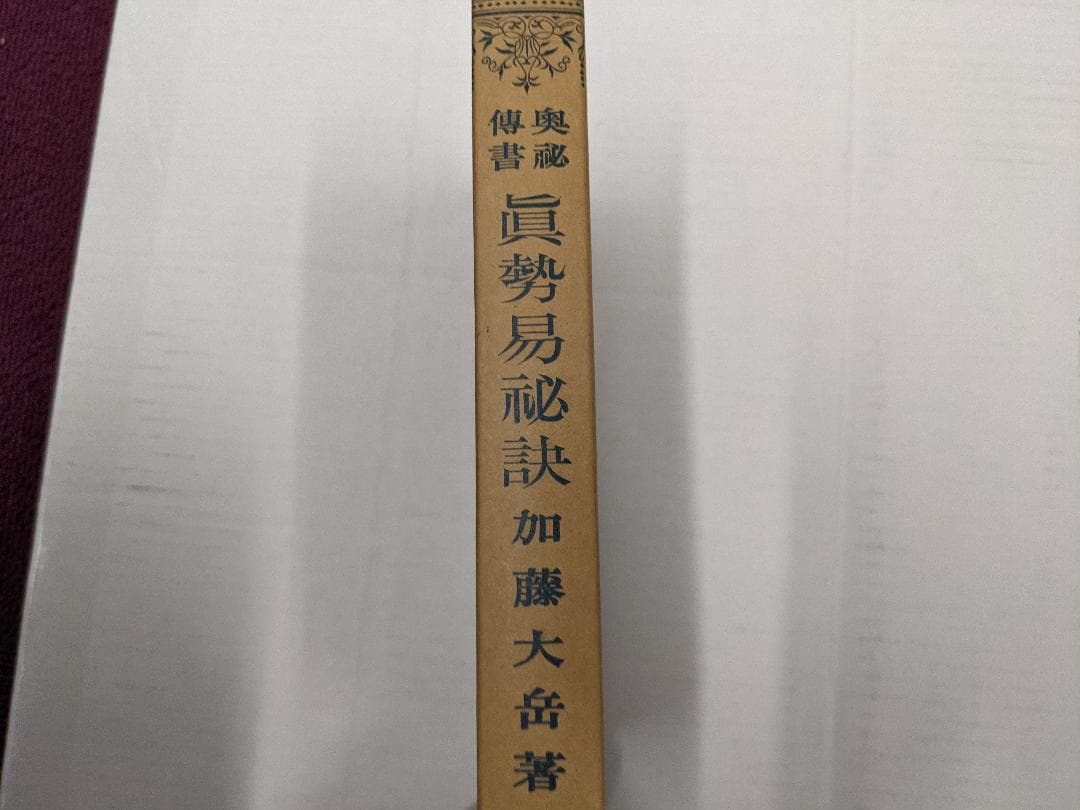 奥祕
傳書
眞勢易祕訣
加藤大岳著